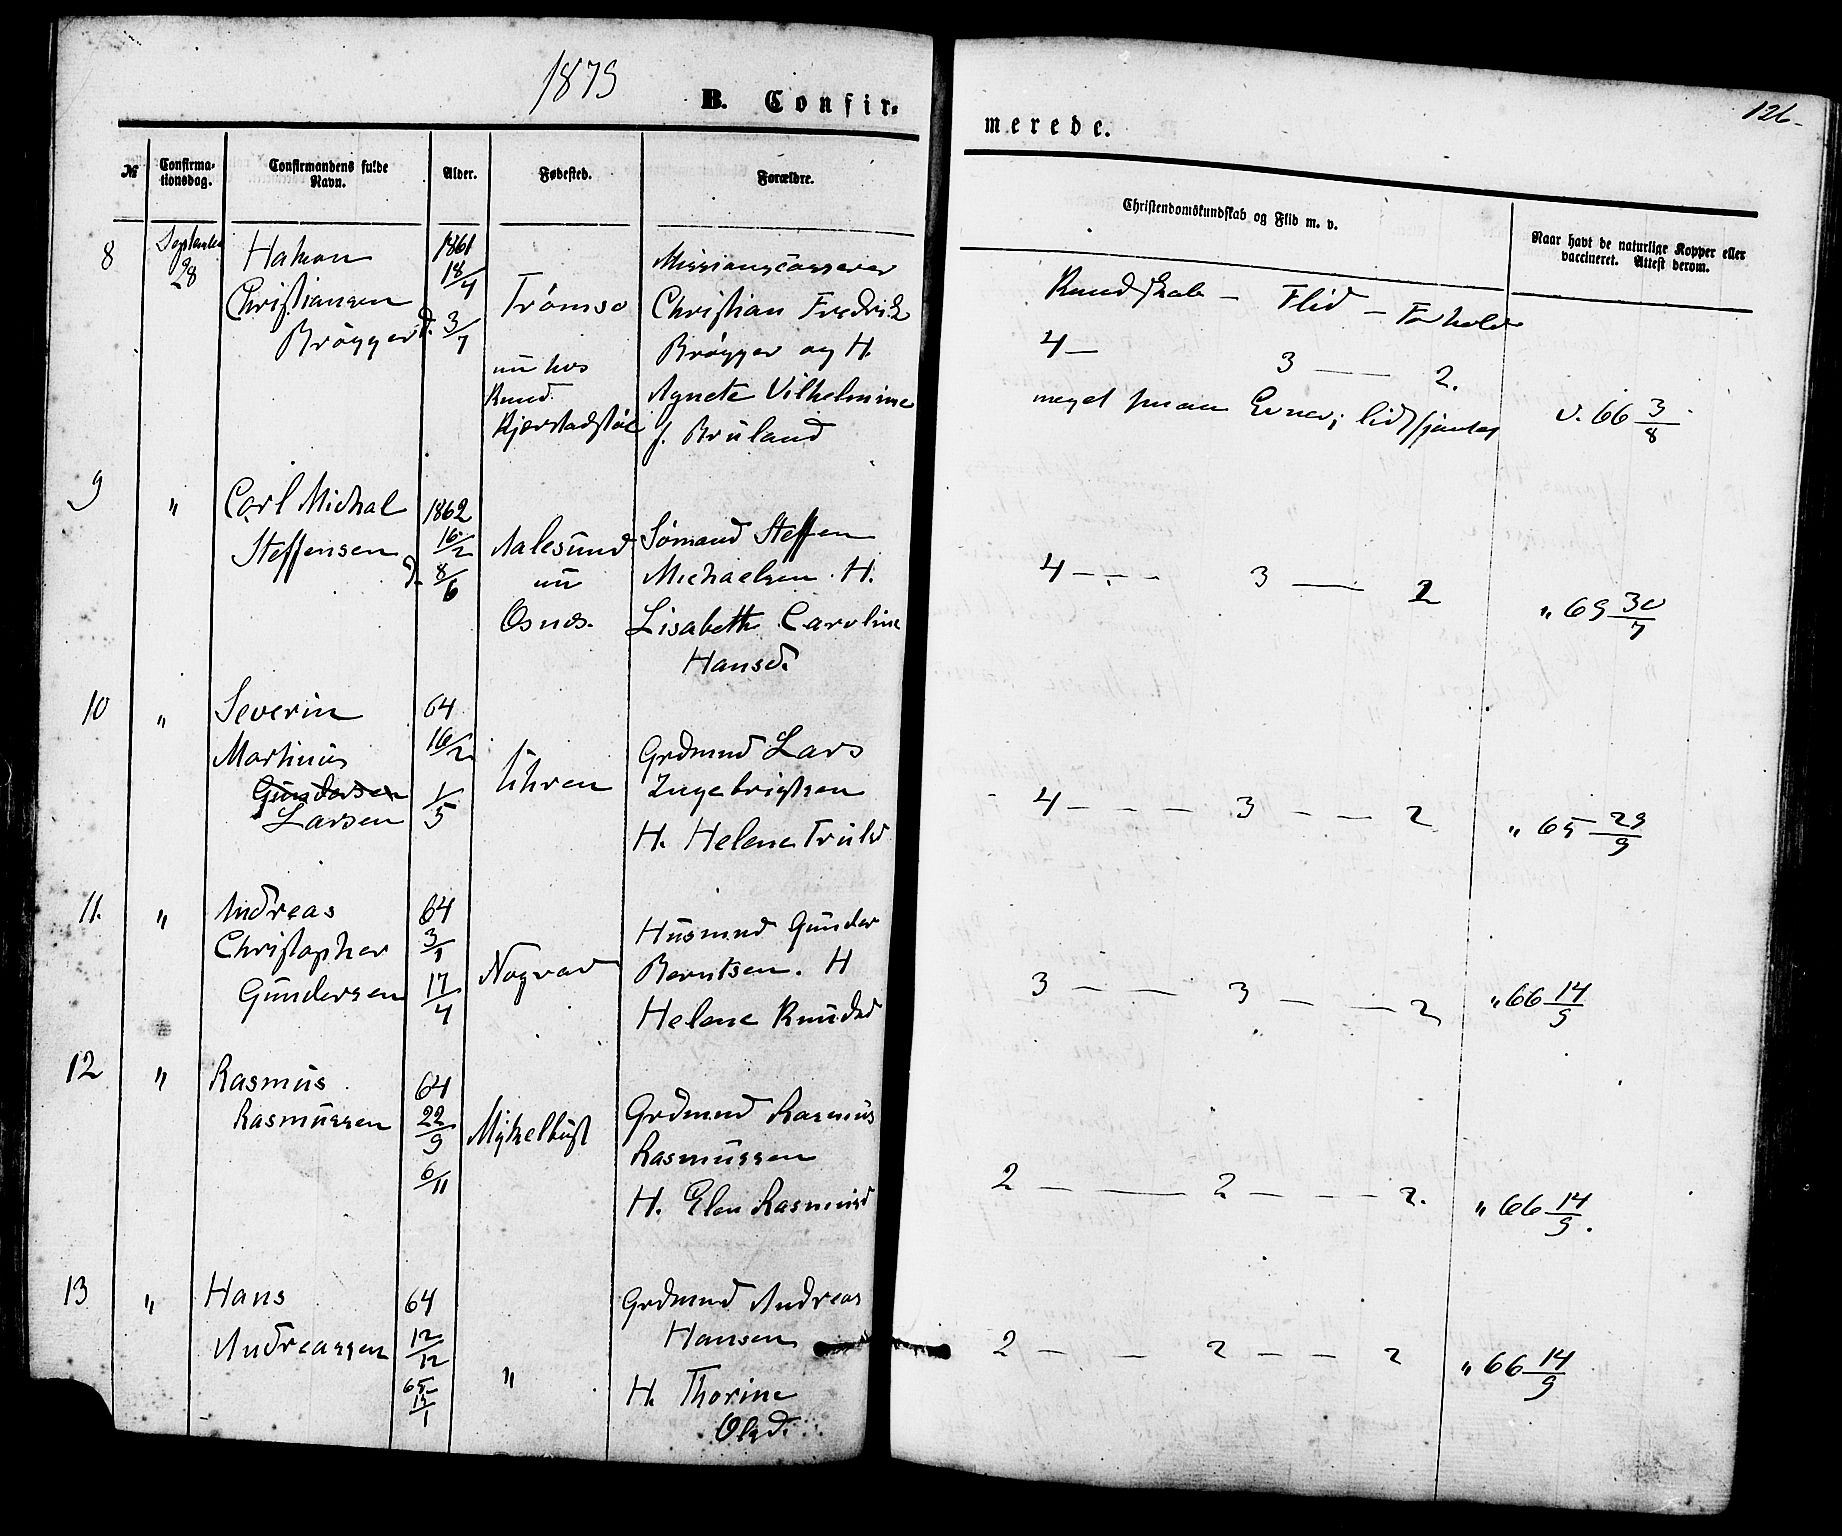 1879
B. Confir-
merede.
126
№
Confirma-
tionsdag.
Confirmandens fulde
Navn.
Alder.
Fødested.
Forældre.
Christendomskundskab og Flid m. v.
Naar havt de naturlige Kopper eller
vaccineret. Attest derom.
8
September
28
Hakon
Christiansen
Brøgger
1861
18/4
d. 3/7
Tromsø
nu hos
Knud
Kjærstadstøl
Missionscasserer
Christian Fredrik
Brøgger og H.
Agnete Vilhelmine
f. Bruland
Kundskab - Flid - Forhold
4 - 3 - 2.
meget smaa Evner;
v. 66 3/8
9
"
Carl Michal
Steffensen
1862
16/2
d. 8/6
Aalesund
nu
Osnes.
Sømand Steffen
Michaelsen. H.
Lisabeth Caroline
Hansd.
4 - - - 3 - 2
" 69 30/7
10
"
Severin
Martinus
Gundersen
Larsen
64
16/2
1/5
Uhren
Grdmnd Lars
Ingebrigtsen
H. Helene Trulsd
4 - - - 3 - - - 2
" 65 29/9
11.
"
Andreas
Christopher
Gundersen
64
3/1
17/4
Nogvad
Husmnd Gunder
Berntsen. H
Helene Knudsd
3 - - - 3 - - 2
" 66 14/9
12
"
Rasmus
Rasmussen
64
22/9
6/11
Myklebust
Grdmnd Rasmus
Rasmussen
H. Elen Rasmusd
2 - - 2 - - - 2.
" 66 14/9.
13
"
Hans
Andreassen
64
12/12
65
15/1
"
Grdmnd Andreas
Hansen
H. Thorine
Olsd.
2 - - 2 - - 2
" 66 14/9